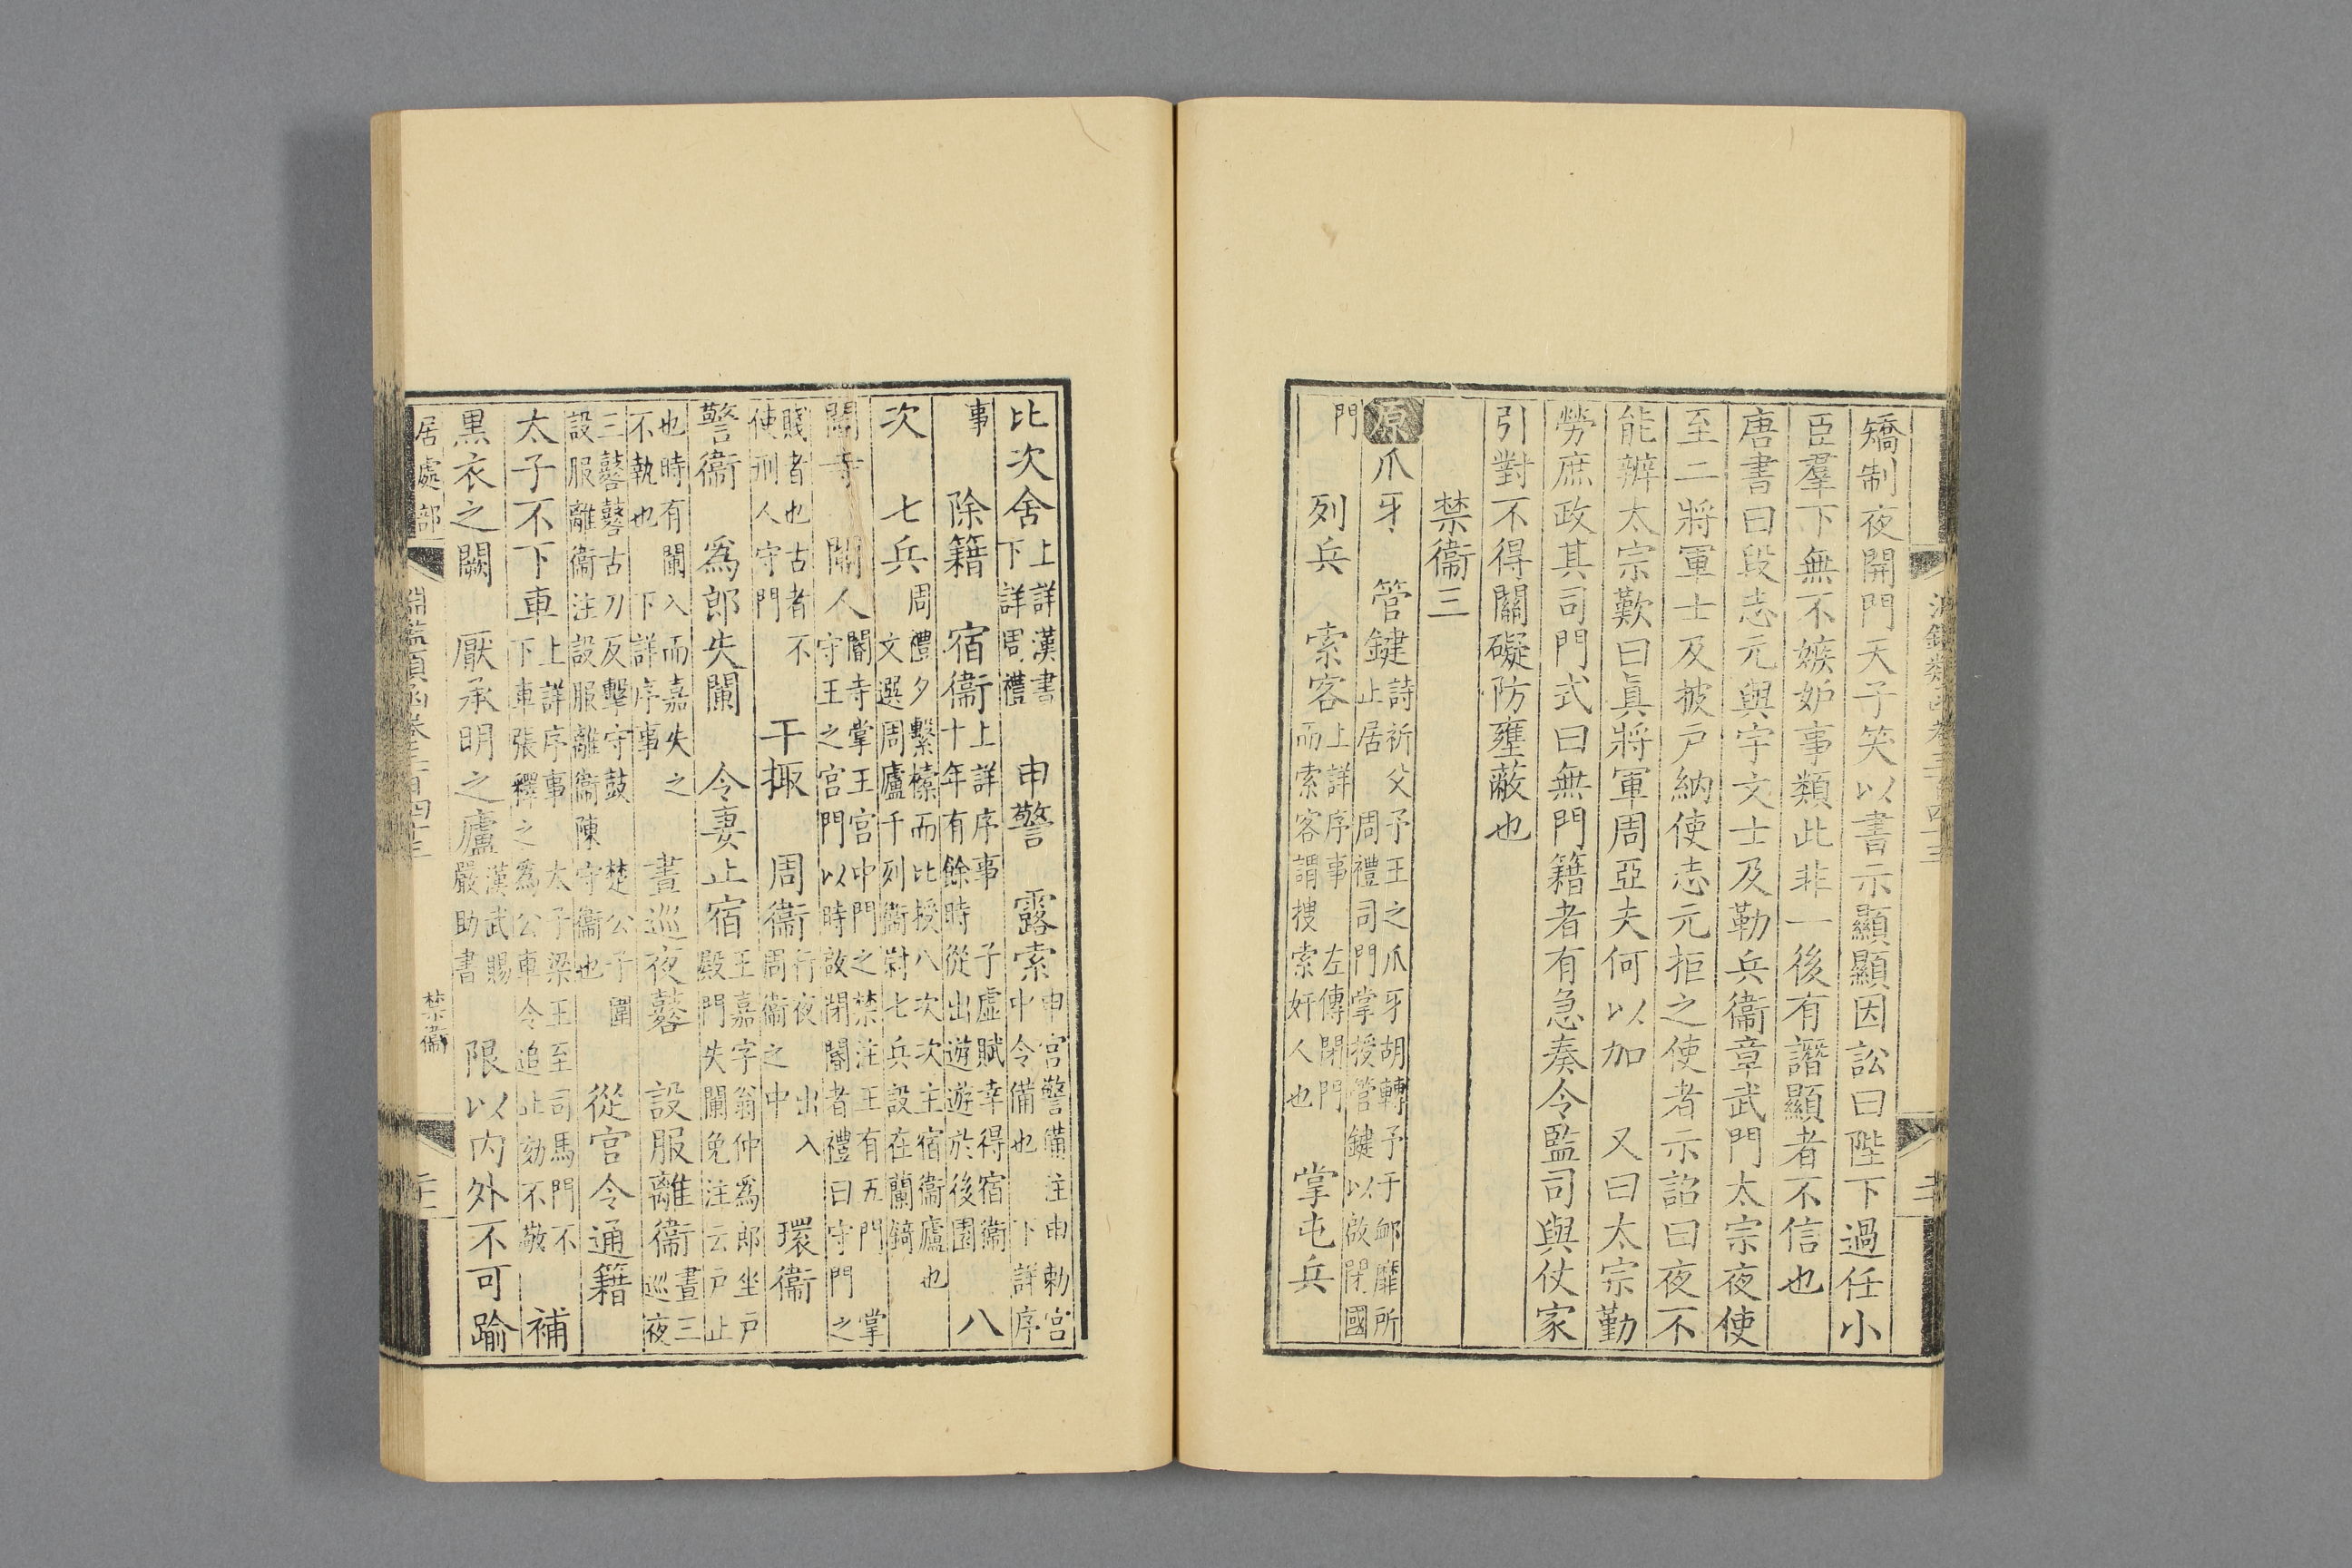 矯制夜開門天子笑以書示顯顯因訟曰陛下過任小
臣羣下無不嫉妒事類此非一後有譖顯者不信也
唐書曰段志元與宇文士及勒兵衞章武門太宗夜使
至二將軍士及披戸納使志元拒之使者示詔曰夜不
能辨太宗歎曰眞將軍周亞夫何以加　又曰太宗勤
勞庶政其司門式曰無門籍者有急奏令監司與仗家
引對不得關礙防壅蔽也
禁衞三
原爪牙　詩祈父予王之爪牙胡轉予于䘏靡所止居　管鍵　周禮司門掌授管鍵以啟閉國
門　列兵　索客　上詳序事　左傳閉門而索客謂搜索奸人也　掌屯兵
比次舍　上詳漢書下詳周禮　申警　露索　申宮警備注申勅宮中令備也　下詳序
事　除籍　宿衞　上詳序事　子虛賦幸得宿衞十年有餘時從出遊遊於後園　八
次　七兵　周禮夕擊㯓而比授八次次主宿衞廬也　文選周廬千列衞尉七兵設在蘭錡
閽寺　閽人　閽寺掌王宮中門之禁注王有五門　掌守王之宮門以時啟閉閽者禮曰守門之
賤者也古者不使刑人守門　干掫　周衞　行夜　出入周衞之中　環衞
警衞　爲郎失闌　令妻止宿　王嘉字翁仲爲郎坐戸殿門失闌免注云戸止
也時有闌入而嘉失之不執也　下詳序事　晝巡夜鼜　設服離衞　晝三巡夜
三鼜鼜古刀反擊守鼓　楚公子圍設服離衞注設服離衞陳守衞也　從宮令通籍
太子不下車　上詳序事　太子梁王至司馬門不下車張釋之爲公車令追止劾不敬　補
黒衣之闕　厭承明之廬　漢武賜嚴助書　限以内外不可踰
居處部　淵鑑類函卷三百四十三　禁衞